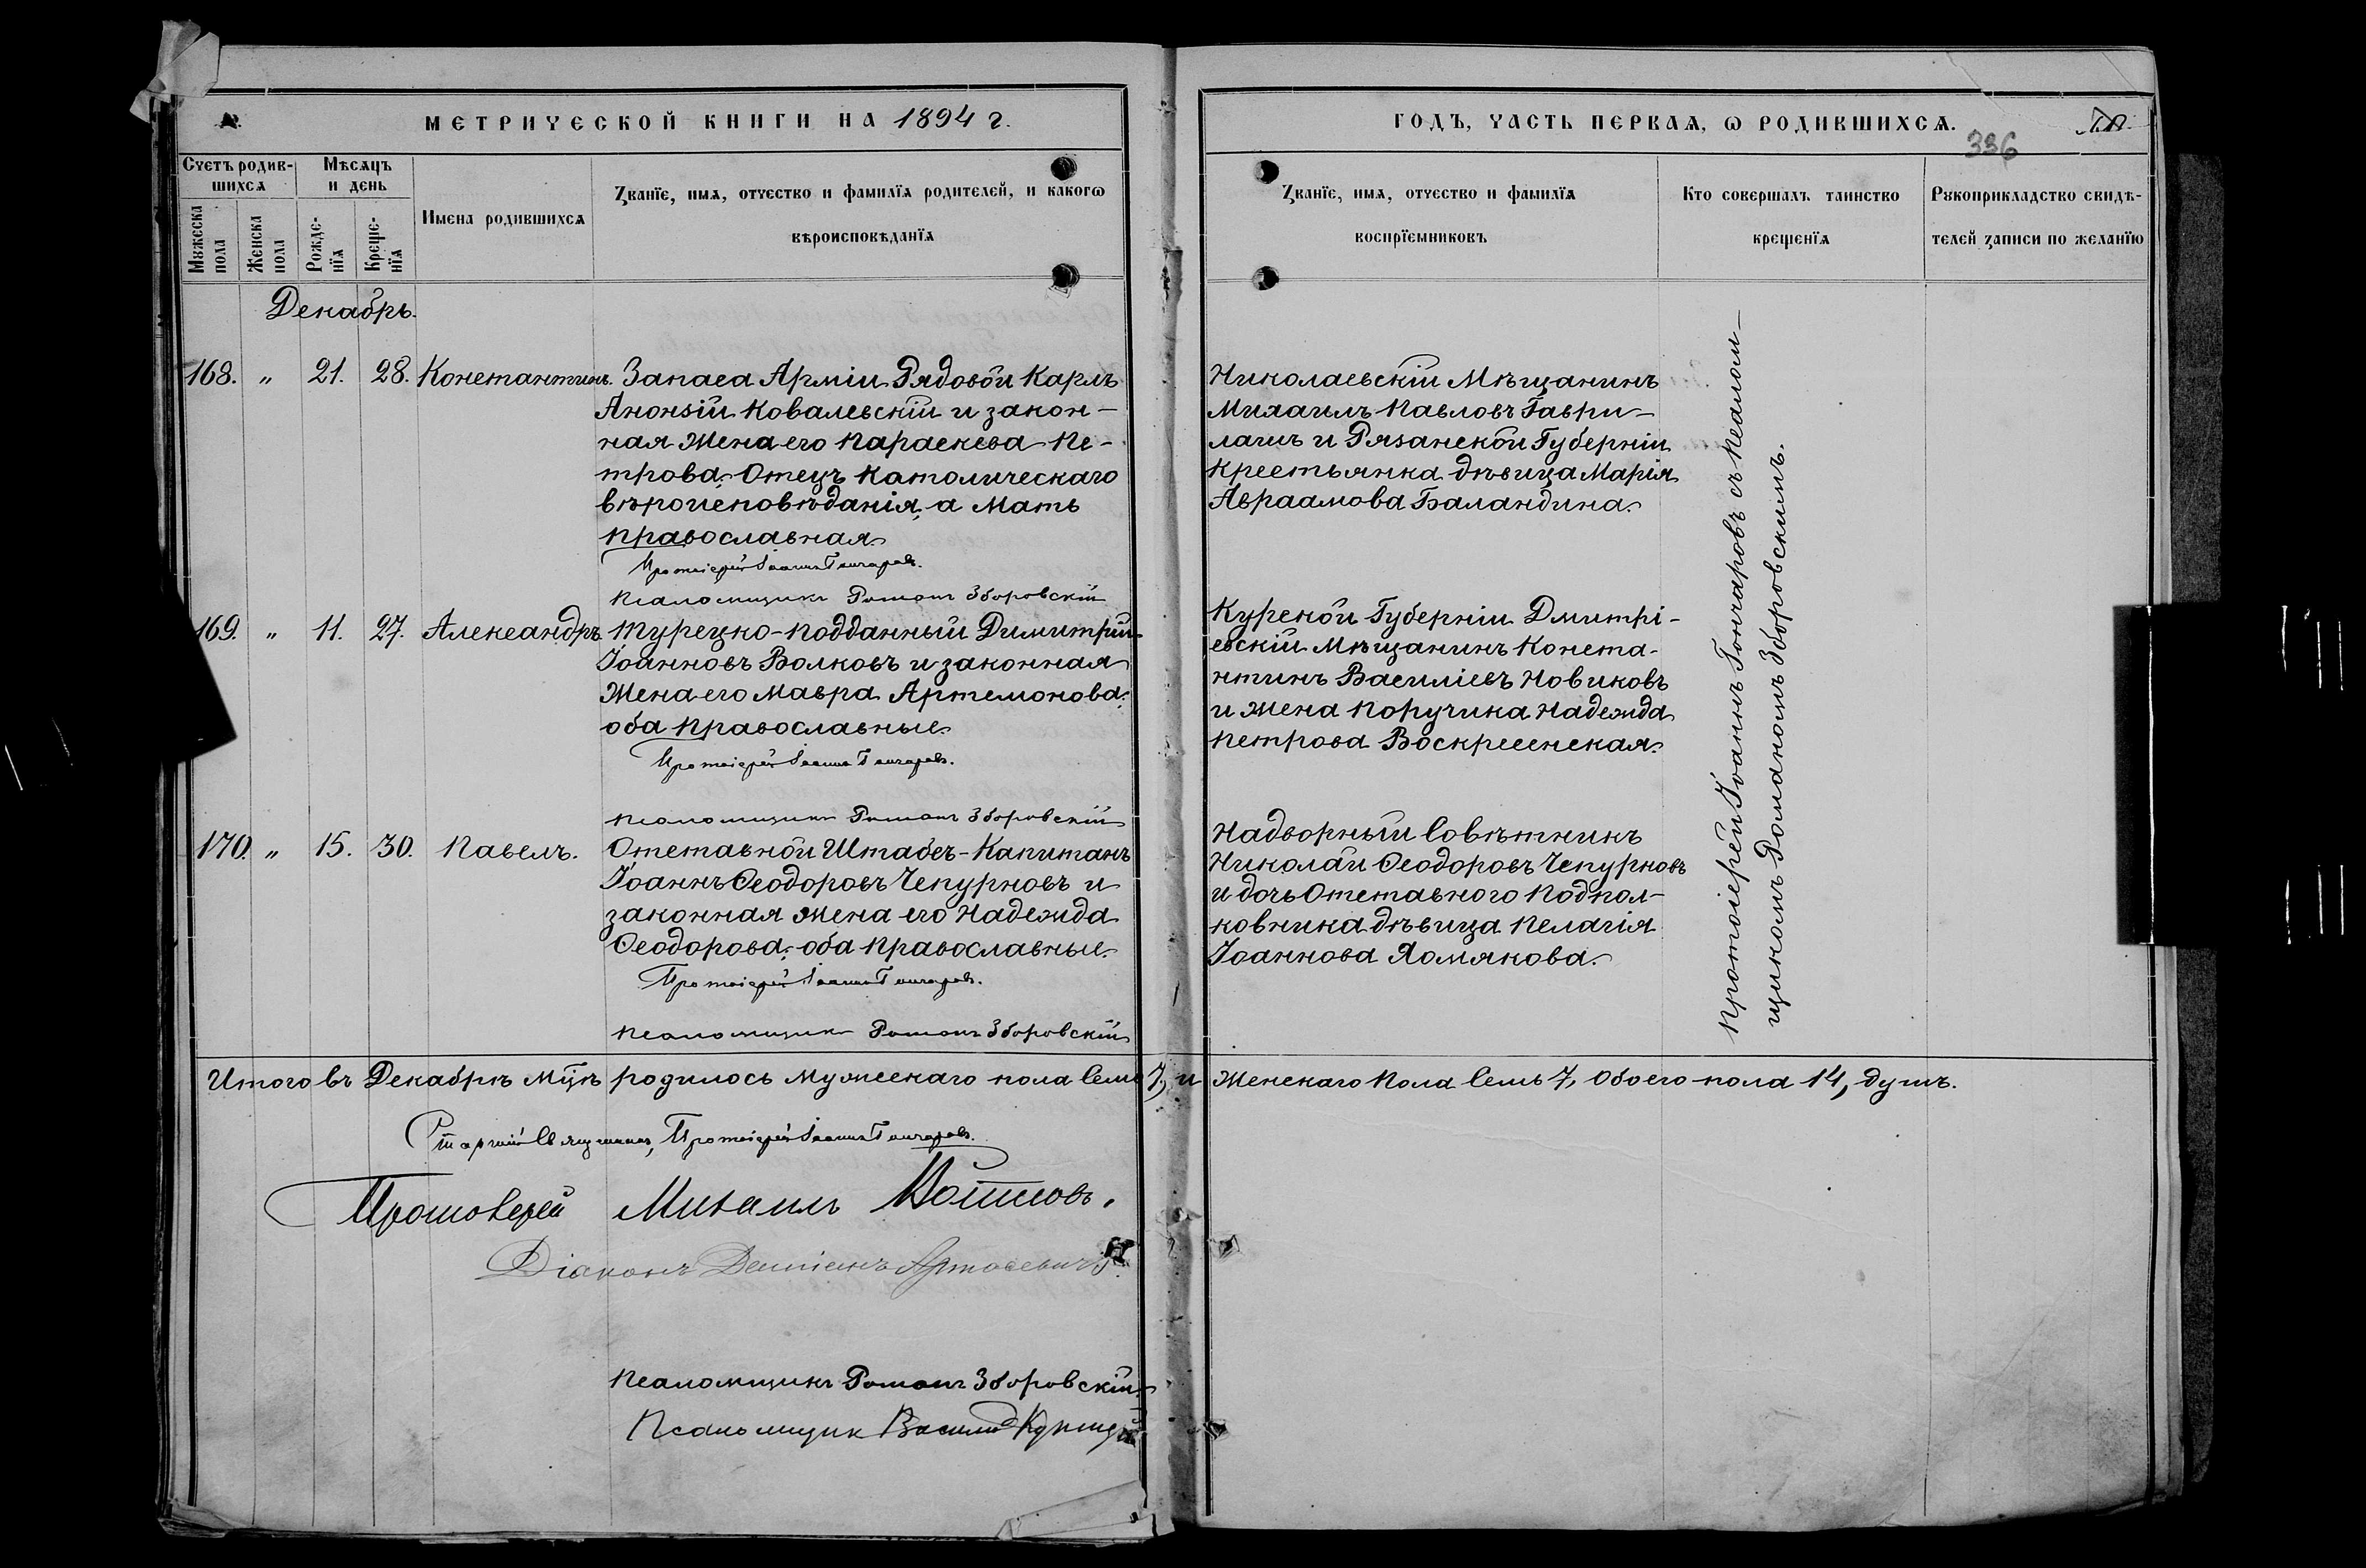 МЕТРИЧЕСКОЙ КНИГИ НА 1894 г.
Счетъ родив-
шихся
Мѣсяцъ
и день
Мужеска
пола
Женска
пола
Рожде-
нїя
Креще-
нїя
Имена родившихся
Званїе, имя, отчество и фамилїя родителей, и какогѡ
вѣроисповѣданїя
Декабрь.
168. „ 21. 28. Константинъ. Запаса Арміи Рядовой Карлъ
Анонзій Ковалевскій и закон-
ная Жена его Параскева Пе-
трова. Отецъ Католическаго
вѣроисповѣданія, а Мать
православная.
Протоіерей Іоаннъ Гончаровъ.
Псаломщикъ Романъ Зборовскій
169. „ 11. 27. Александръ. Турецко-подданный Димитрій
Іоанновъ Волковъ и законная
Жена его Мавра Артемонова;
оба православные.
Протоіерей Іоаннъ Гончаровъ.
Псаломщикъ Романъ Зборовскій
170. „ 15. 30. Павелъ. Отставной Штабсъ-Капитанъ
Іоаннъ Ѳеодоровъ Чепурновъ и
законная жена его Надежда
Ѳеодорова; оба православные.
Протоіерей Іоаннъ Гончаровъ.
Псаломщикъ Романъ Зборовскій
ГОДЪ, ЧАСТЬ ПЕРВАЯ, Ѡ РОДИВШИХСЯ.
336
Званїе, имя, отчество и фамилїя
воспрїемниковъ
Кто совершалъ таинство
крещенїя
Рукоприкладство свидѣ-
телей записи по желанїю
Николаевскій Мѣщанинъ
Михаилъ Павловъ Гаври-
лашъ и Рязанской Губерніи
крестьянка дѣвица Марія
Авраамова Баландина.
Курской Губерніи Дмитрі-
евскій Мѣщанинъ Конста-
нтинъ Василіевъ Новиковъ
и жена поручика Надежда
Петрова Воскресенская.
Надворный Совѣтникъ
Николай Ѳеодоровъ Чепурновъ
и дочь Отставного Подпол-
ковника дѣвица Пелагія
Іоаннова Хомякова.
Протоіерей Іоаннъ Гончаровъ съ Псалом-
щикомъ Романомъ Зборовскимъ.
Итого въ Декабрѣ Мцѣ родилось мужескаго пола Семь 7, и Женскаго Пола Семь 7, Обоего пола 14, душъ.
Старшій Священникъ, Протоіерей Іоаннъ Гончаровъ.
Протоіерей Михаилъ
Діаконъ Даміанъ
Псаломщикъ Романъ Зборовскій
Псаломщик Василій